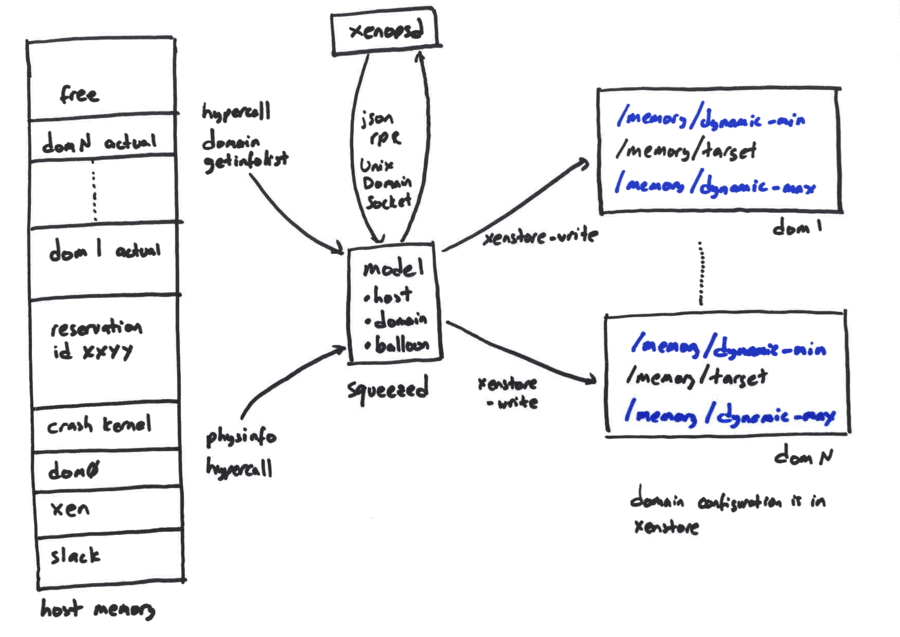 xenopsd
free
domN actual
dom1 actual
reservation
id xxyy
crash kernel
dom0
xen
slack
host memory
hypercall
domain
getinfolist
json
rpc
Unix
Domain
Socket
model
•host
•domain
•balloon
squeezed
physinfo
hypercall
xenstore-write
xenstore
-write
/memory/dynamic-min
/memory/target
/memory/dynamic-max
dom1
/memory/dynamic-min
/memory/target
/memory/dynamic-max
domN
domain configuration is in
xenstore